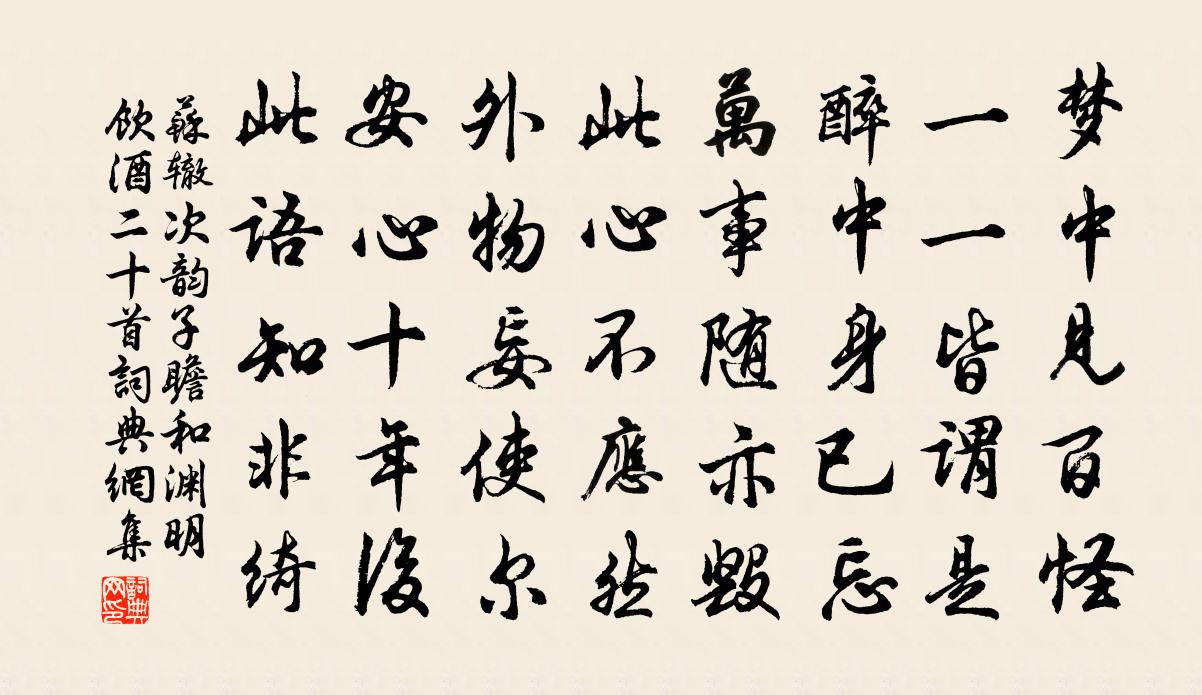 梦中見百怪
一一皆謂是
醉中身已忘
萬事随亦毀
此心不應然
外物妄使尔
安心十年後
此語知非綺
蘇辙次韵子瞻和渊明
飲酒二十首詞典網集
詞典网印